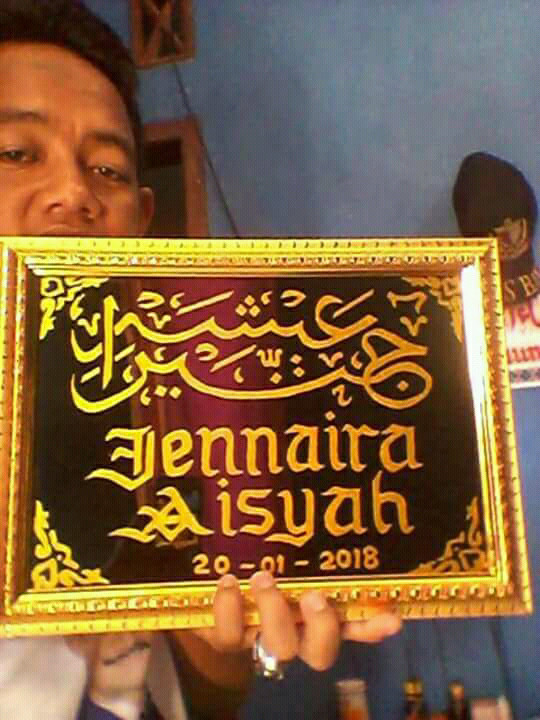 عيشه
جنيرا
Jennaira
Aisyah
20-01-2018